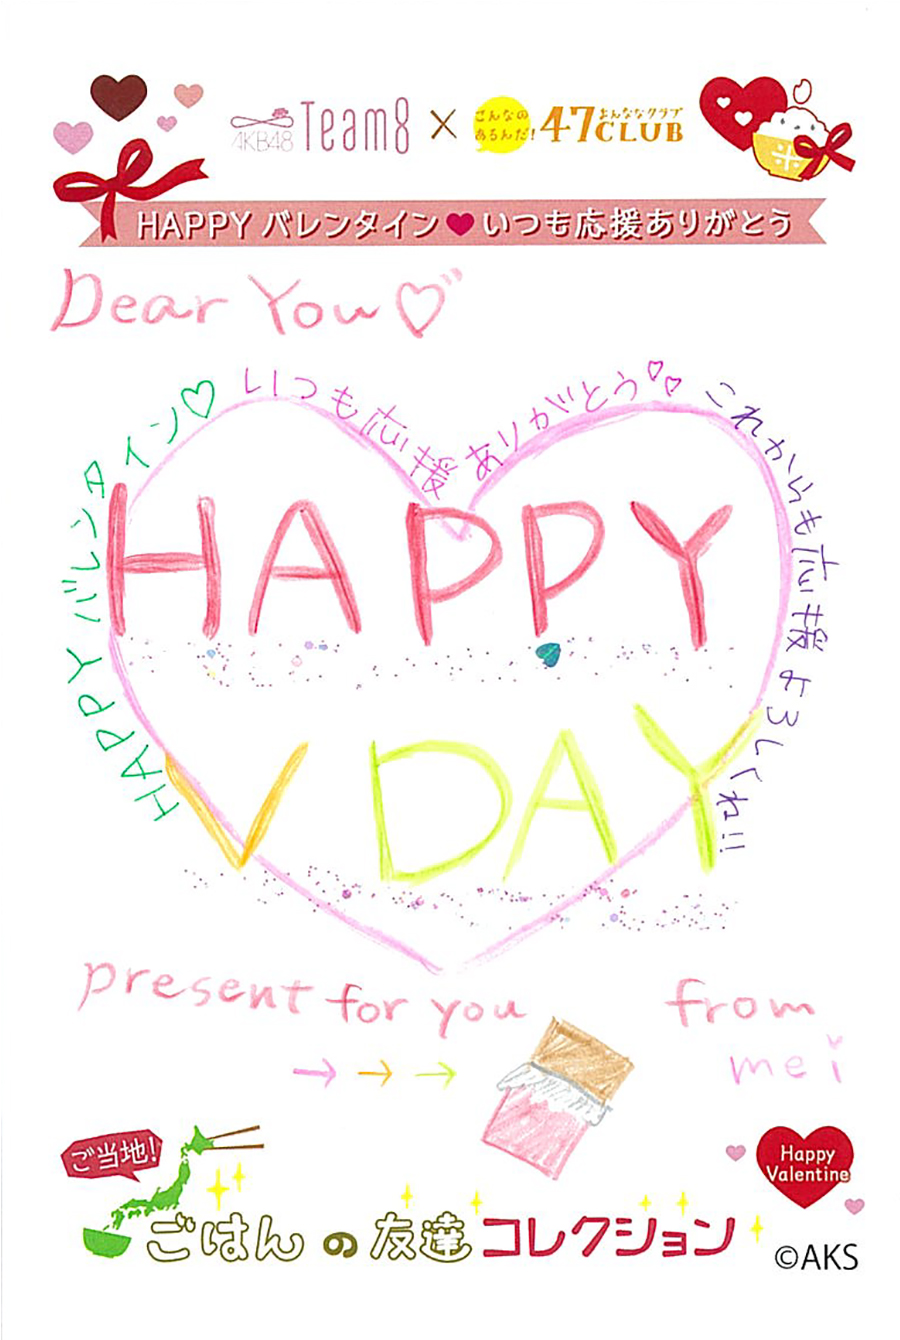 AKB48 Team8 × こんなの あるんだ! 47CLUB よんななクラブ
HAPPY バレンタイン♥いつも応援ありがとう
Dear You♡
HAPPY バレンタイン♡ いつも応援ありがとう♡♡ これからも応援よろしくね!!
HAPPY
V DAY
present for you
from
mei
→→→
ご当地!
ごはんの友達コレクション
Happy
Valentine
©AKS